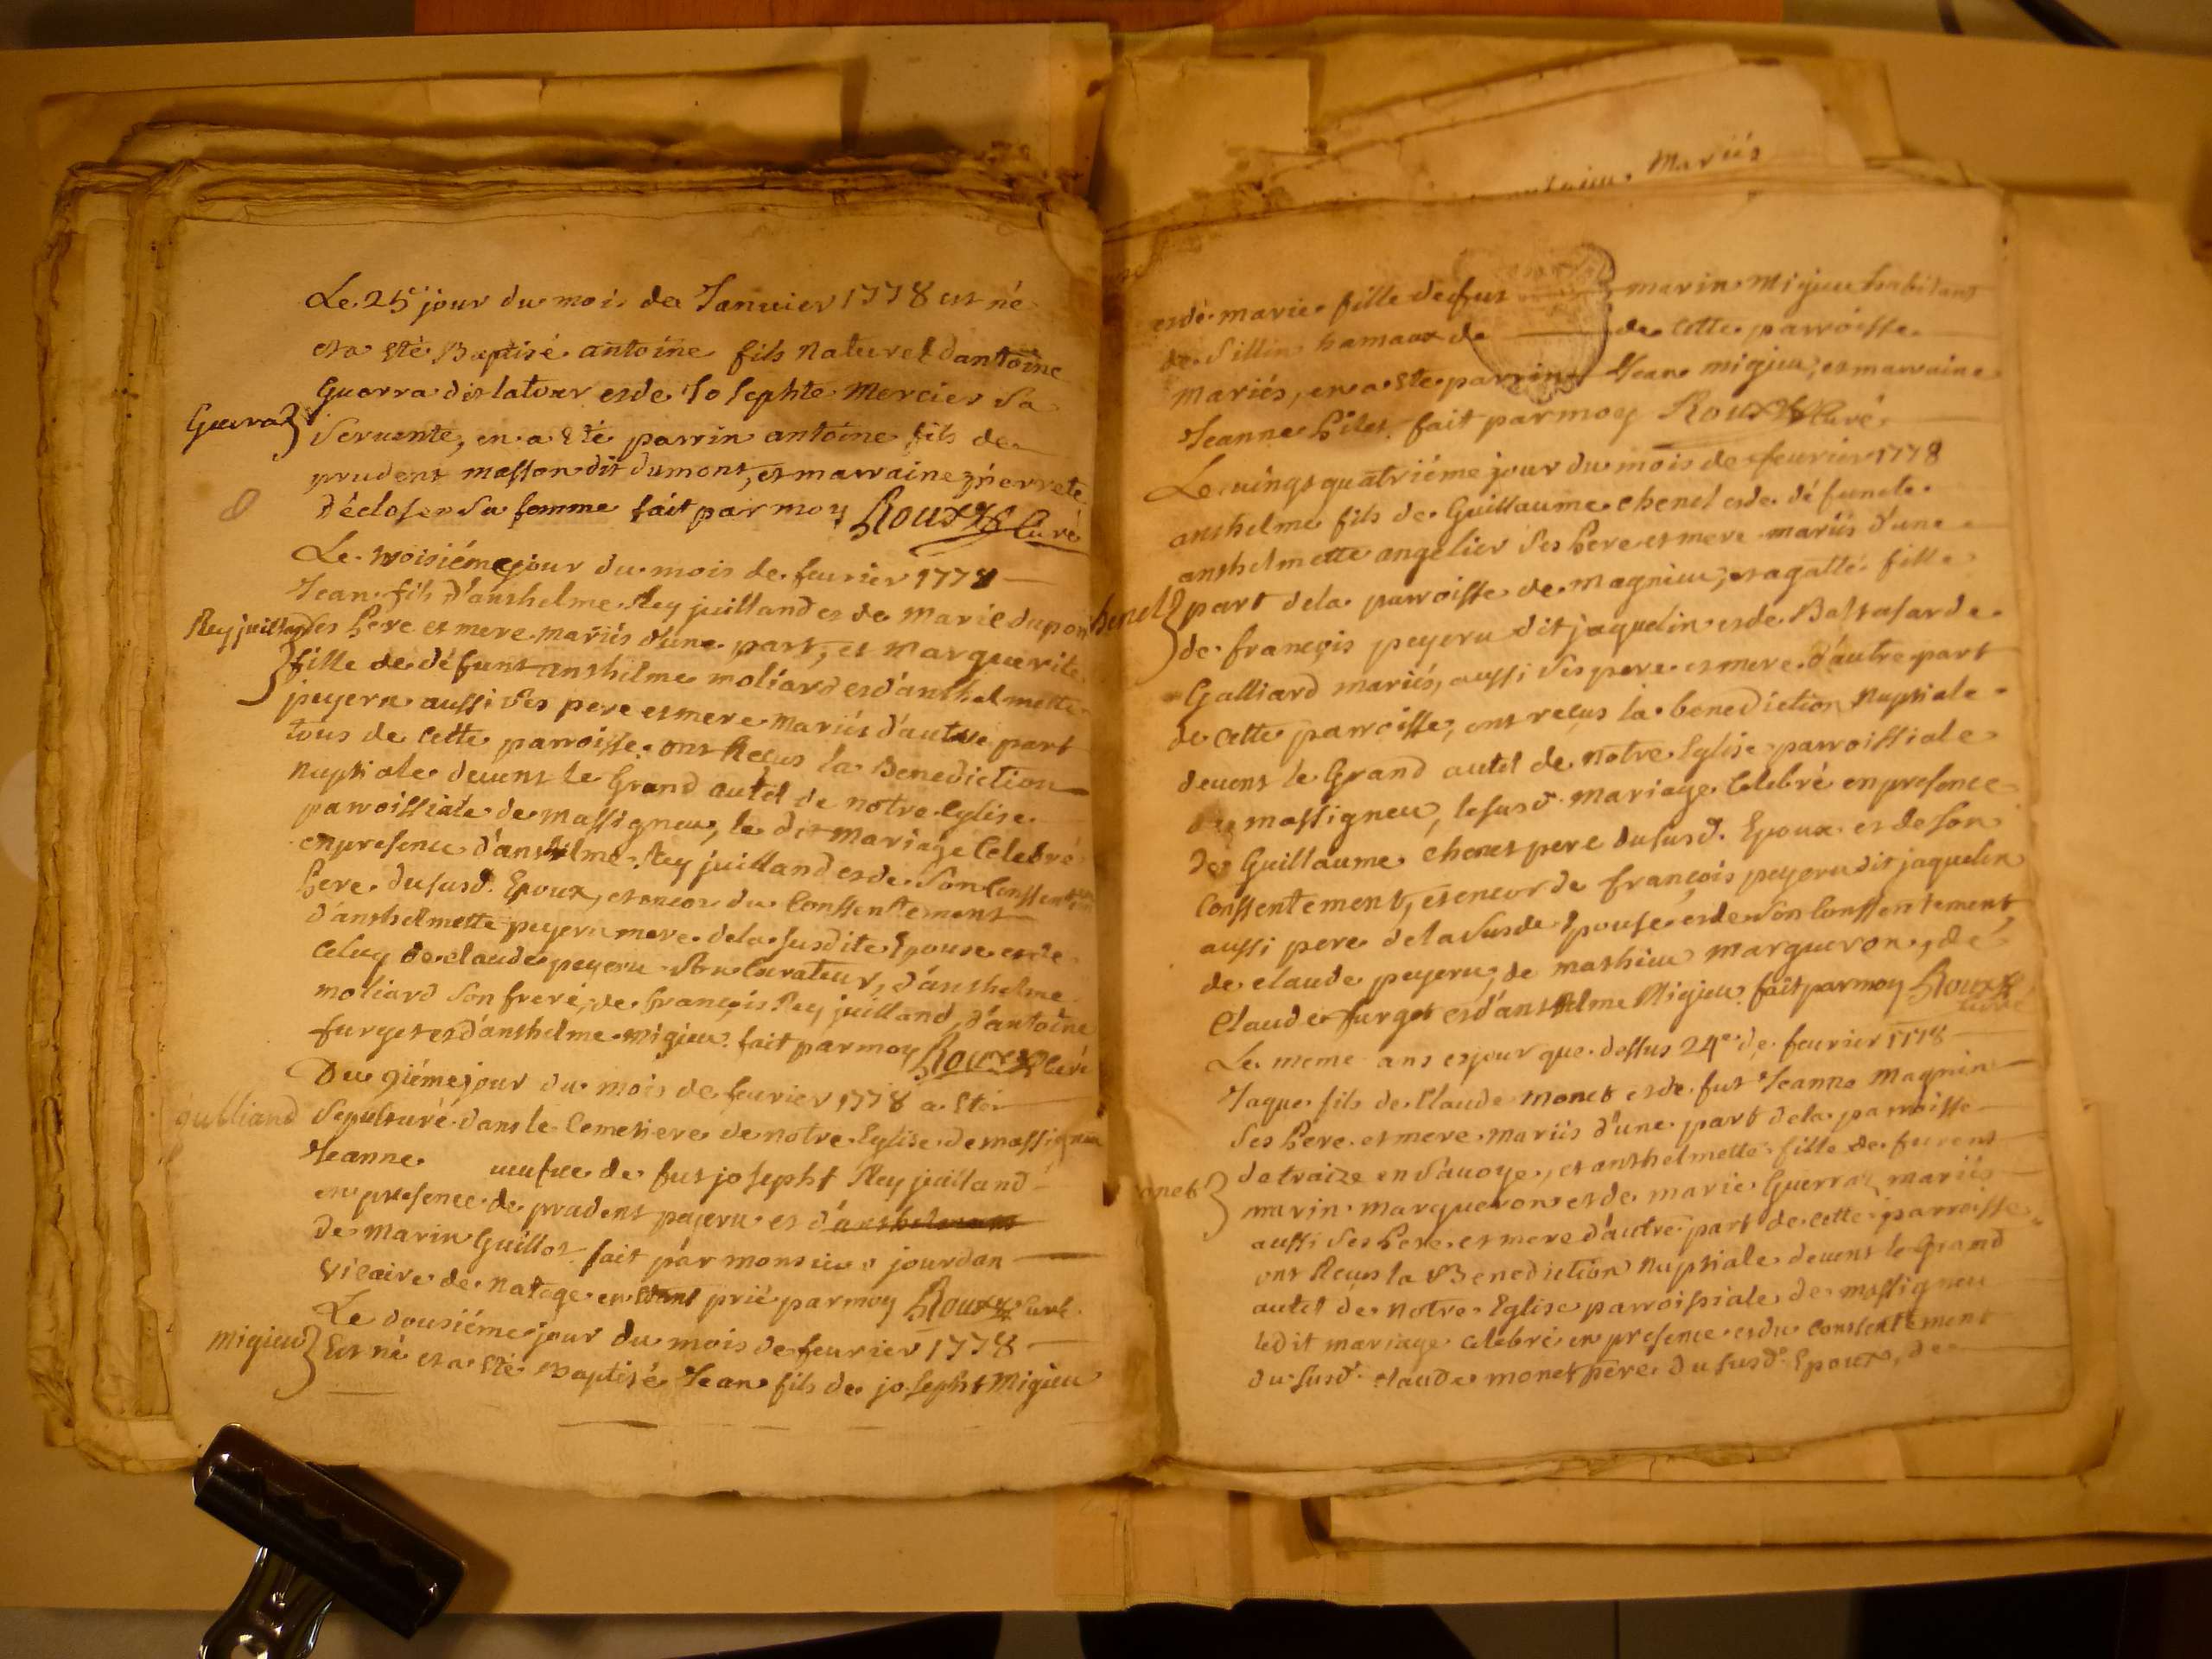 Mariés
Le 25e jour du mois de Janvier 1778 est né
et a été Baptisé antoine fils naturel d'antoine
Guerraz
Guerra dit latour et de Josephte Mercier sa
servente, en a été parrin antoine fils de
prudent masson dit dumont, et marraine pierrete
décloser sa femme fait par moy Roux Curé
Le troisiéme jour du mois de fevrier 1778
Jean fils d'anthelme Rey juilland et de Marie dupont
Rey juilland
ses pere et mere mariés d'une part, et Marguerite
fille de défunt anthelme moliard et d'anthelmette
peyeru aussi ses pere et mere mariés d'autre part
tous de cette parroisse ont Reçus la Benediction
Nuptiale devent le Grand autel de notre Eglise
parroissiale de massigneu, le dit mariage Celebré
en presence d'anthelme Rey juilland et de son Conssentement
pere du susd. Epoux, et encor du Conssentement
d'anthelmette peyeru mere de la susdite Epouse et de
Celuy de claude peyeru son Curateur, d'anthelme
moliard son frere, de françois Rey juilland, d'antoine
furget et d'anthelme migieu fait par moy Roux Curé
Du 9iéme jour du mois de fevrier 1778 a été
juilliand
Sepulturé dans le Cemetiere de notre Eglise de massigneu
Jeanne veufve de fut josepht Rey juilland
en presence de prudent peyeru et d'anthelme
de Marin Guillot fait par monsieur jourdan
vicaire de Natage en étant prié par moy Roux Curé
Le dousiéme jour du mois de fevrier 1778
migieu
Est né et a été Baptisé Jean fils de josepht Migieu
et de marie fille de fut marin Migieu habitant
de Sillin hamaux de de cette parroisse
Mariés, en a été parrin Jean migieu, et marraine
Jeanne fait par moy Roux Curé
Le vingt quatriéme jour du mois de fevrier 1778
anthelme fils de Guillaume chenet et de défuncte
anthelmette angelier ses pere et mere mariés d'une
henet
part de la parroisse de magnieu, et agatte fille
de françois peyeru dit jaquelin et de Baltasarde
Galliard mariés, aussi ses pere et mere d'autre part
de cette parroisse, ont reçus la benediction Nuptiale
devent le Grand autel de notre Eglise parroissiale
de massigneu, le susd. mariage Celebré en presence
de Guillaume chenet pere du susd. Epoux et de son
Conssentement, et encor de françois peyeru dit jaquelin
aussi pere de la susde Epouse et de son Conssentement
de claude peyeru, de mathieu margueron, de
Claude furget et d'anthelme Migieu fait par moy Roux
Curé
Le meme ans et jour que dessus 24e de fevrier 1778
Jaque fils de Claude monet et de fut Jeanne Magnin
ses pere et mere mariés d'une part de la parroisse
onet
de traize en savoye, et anthelmette fille de furent
marin margueron et de marie Guerraz mariés
aussi ses pere et mere d'autre part de cette parroisse
ont Reçus la Benediction Nuptiale devent le Grand
autel de notre Eglise parroissiale de massigneu
ledit mariage celebré en presence et du conssentement
du susd. claude monet pere du susd. Epoux, de